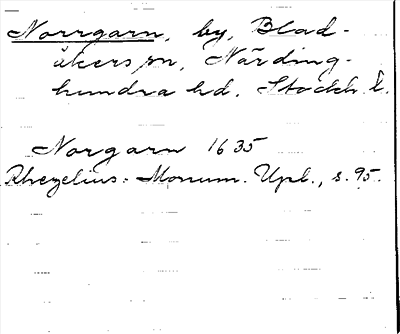 Norrgarn, by, Blad-
åkers sn, Närding-
hundra hd. Stockh. l.
Norgarn 1635
Rhezelius: Monum. Upl., s. 95.